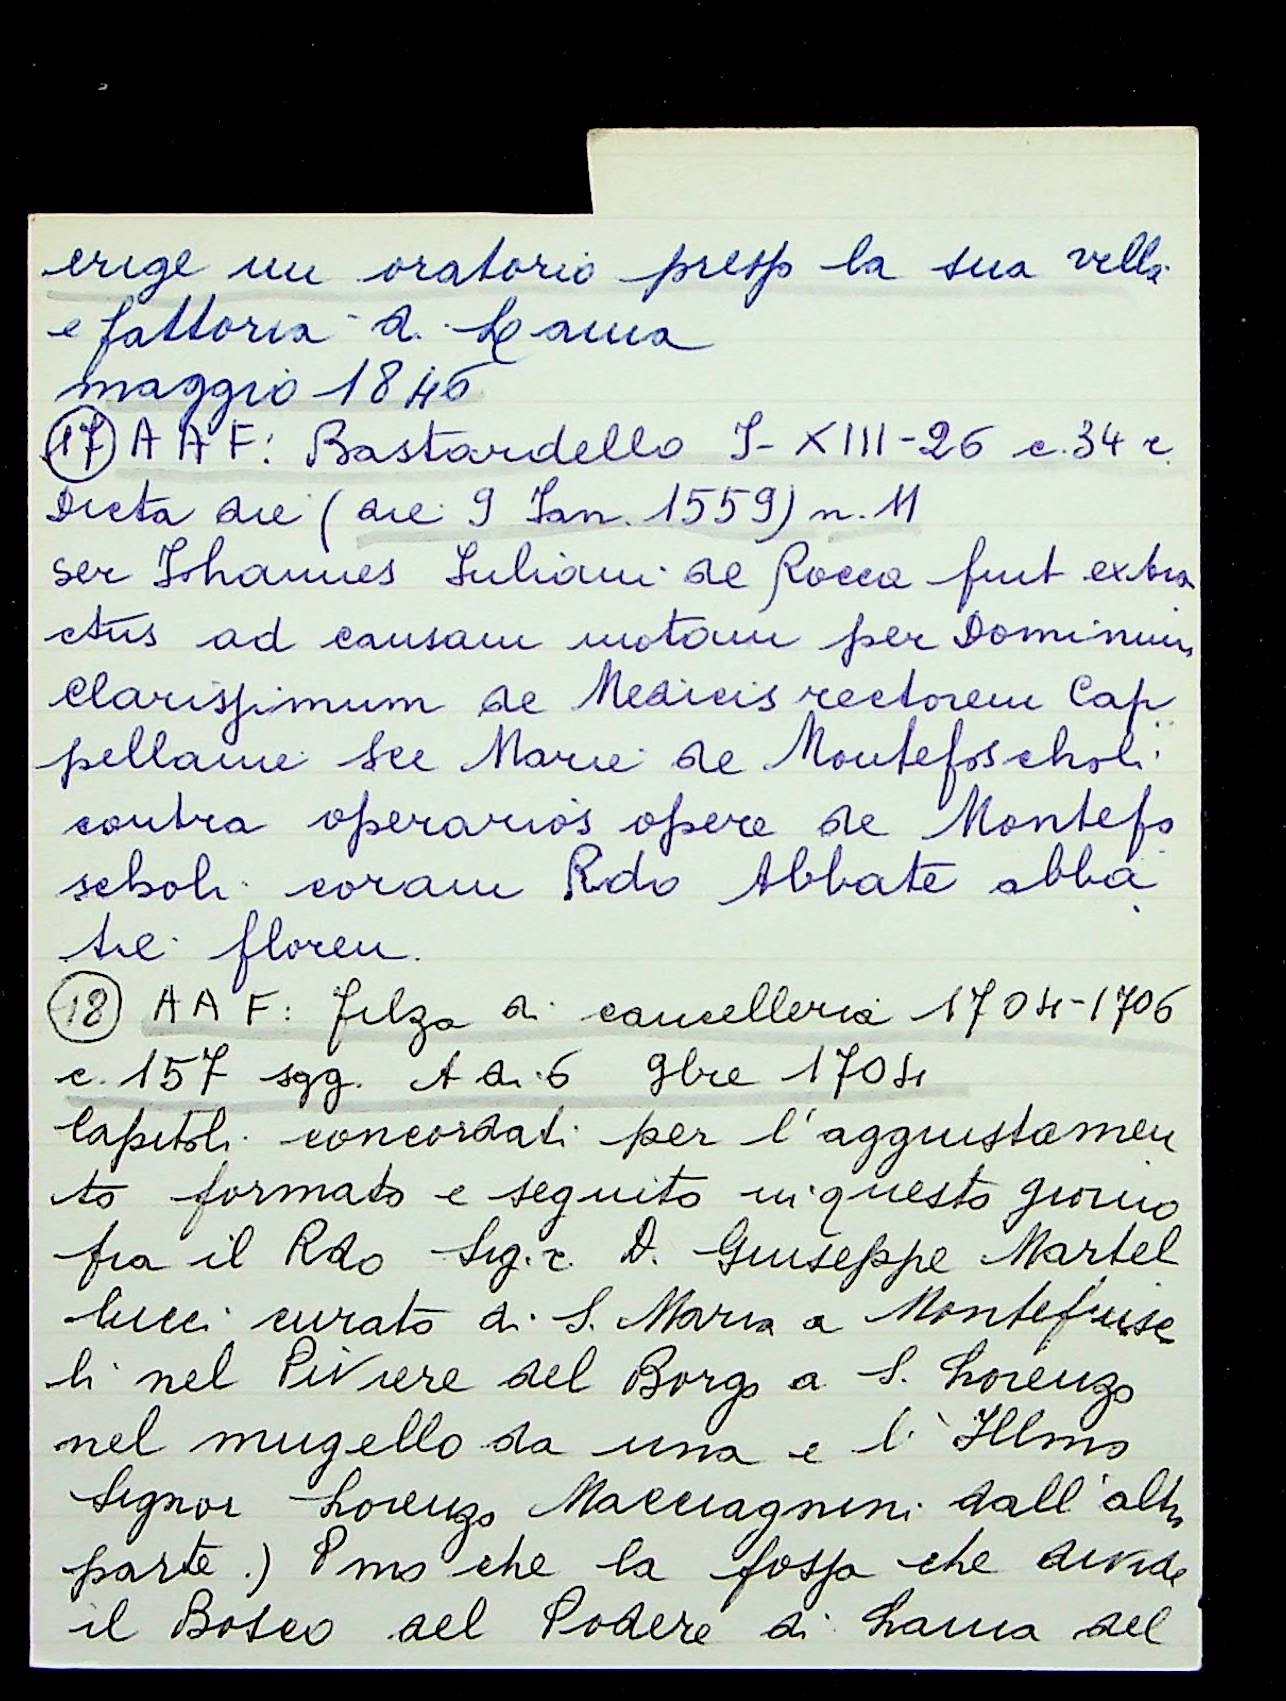 erige un oratorio presso la sua villa
e fattoria di Lama
maggio 1846
(17) A A F: Bastardello I-XIII-26 c.34 r.
Dicta die (die 9 Jan. 1559) n. 11
ser Johannes Juliani de Rocca fuit extra
ctus ad causam motam per Dominum
Clarissimum de Medicis rectorem Cap
pellanie Sce Marie de Montefoscholi
contra operarios opere de Montefo
scholi coram Rdo Abbate abba
tie floren.
(18) A A F: filza di cancelleria 1704-1706
c. 157 sgg. A di 6 9bre 1704
Capitoli concordati per l'aggiustamen
to formato e seguito in questo giorno
fra il Rdo Sig.r. D. Giuseppe Martel
lucci curato di S. Maria a Montefiusc
li nel Piviere del Borgo a S. Lorenzo
nel mugello da una e l'Illmo
Signor Lorenzo Macciagnini dall'altra
parte.) Pmo che la fossa che divide
il Bosco del Podere di Lama del